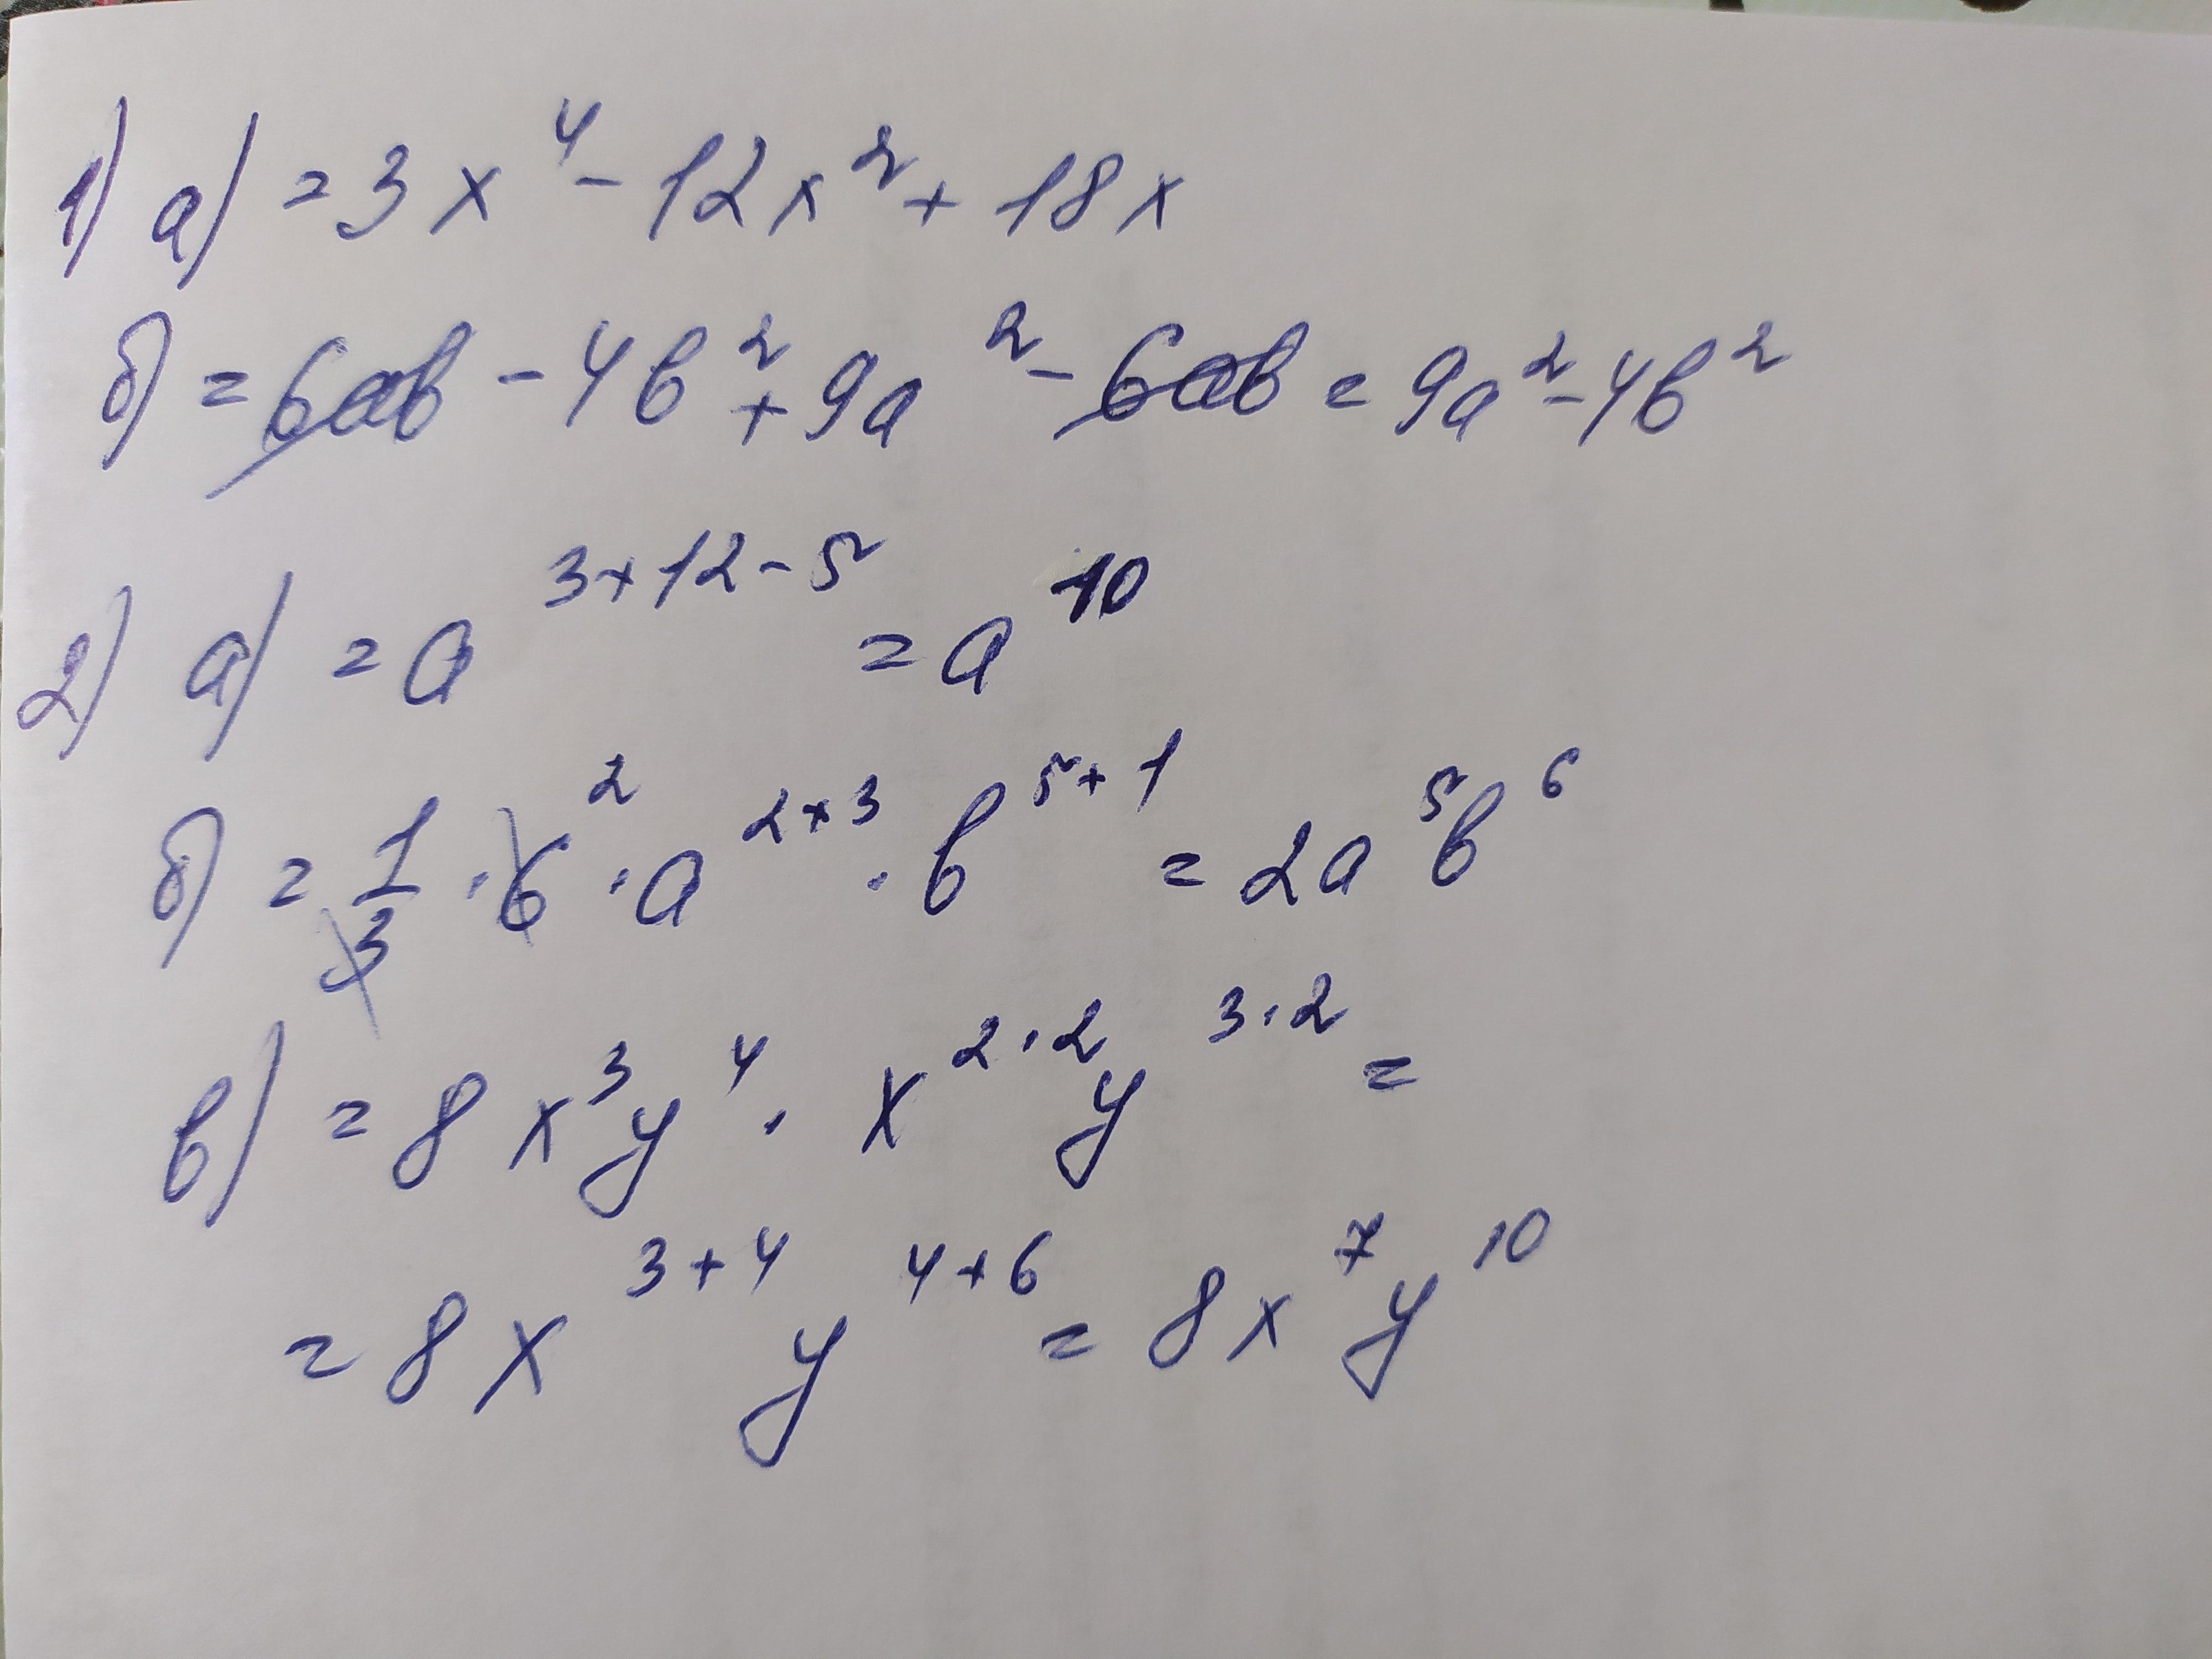 1) а) = 3x⁴ - 12x² + 18x
б) = 6ab - 4b² + 9a² - 6ab = 9a² - 4b²
2) а) = a³⁺¹²⁻⁵ = a¹⁰
б) = 1/3 · 6² · a²⁺³ · b⁵⁺¹ = 2a⁵b⁶
в) = 8x³y⁴ · x²·²y³·² =
= 8x³⁺⁴y⁴⁺⁶ = 8x⁷y¹⁰